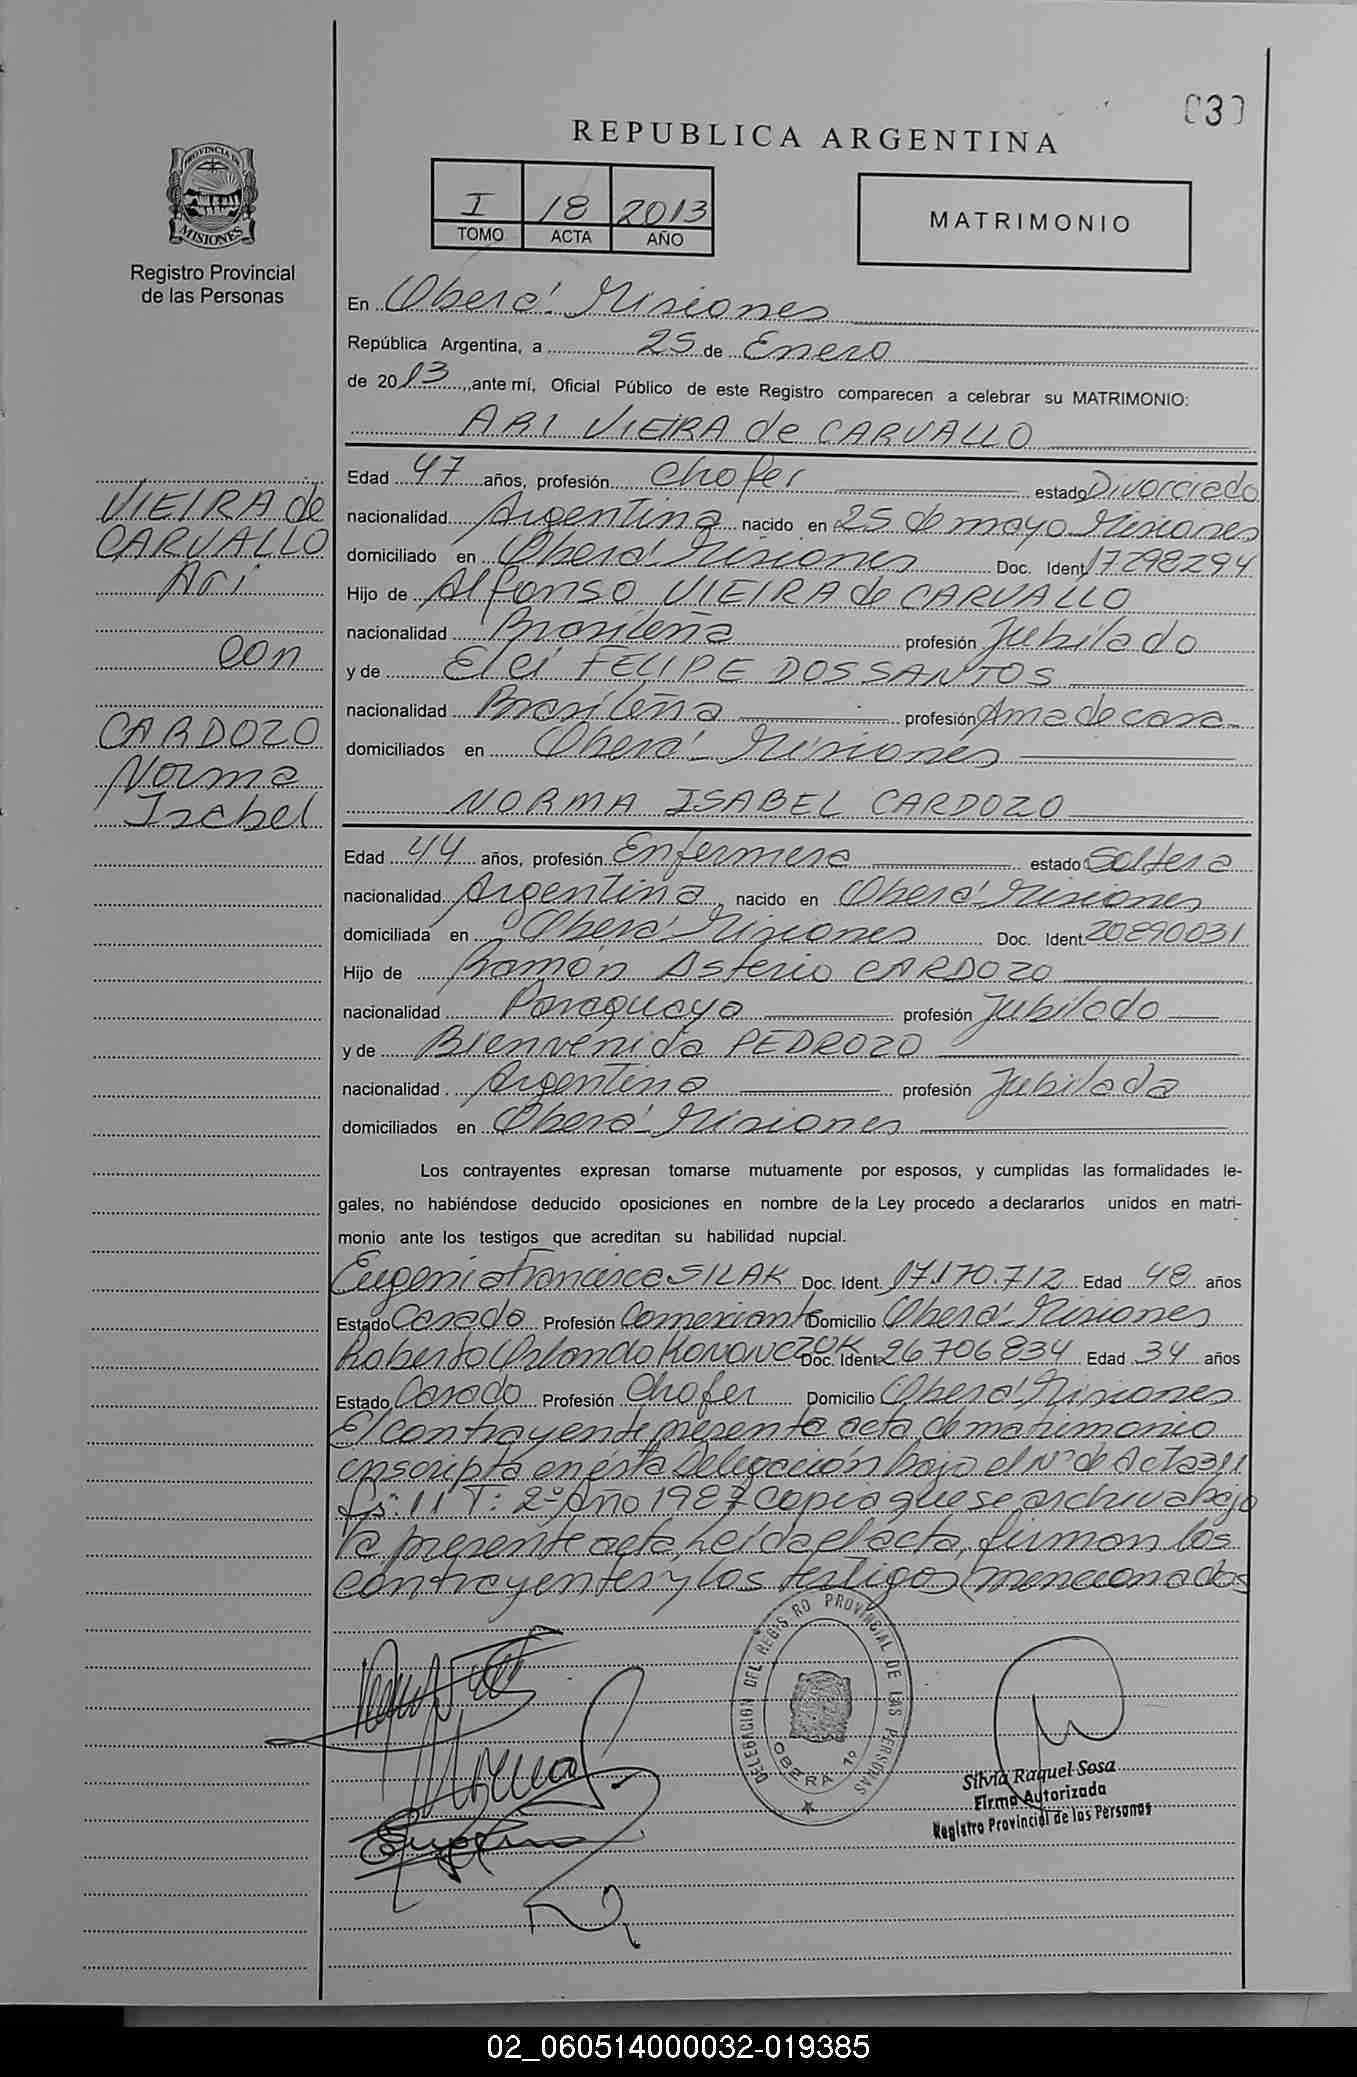 [3]
REPUBLICA ARGENTINA
PROVINCIA DE
MISIONES
Registro Provincial
de las Personas
I 18 2013
TOMO ACTA AÑO
MATRIMONIO
En Oberá Misiones
República Argentina, a 25 de Enero
de 2013, ante mí, Oficial Público de este Registro comparecen a celebrar su MATRIMONIO:
ARI VIEIRA de CARVALLO
VIEIRA de
CARVALLO
Ari
con
CARDOZO
Norma
Isabel
Edad 47 años, profesión Chofer estado Divorciado
nacionalidad Argentina nacido en 25 de mayo Misiones
domiciliado en Oberá Misiones Doc. Ident 17298294
Hijo de Alfonso VIEIRA de CARVALLO
nacionalidad Brasileña profesión Jubilado
y de Elci FELIPE DOS SANTOS
nacionalidad Brasileña profesión Ama de casa
domiciliados en Oberá Misiones
NORMA ISABEL CARDOZO
Edad 44 años, profesión Enfermera estado Soltera
nacionalidad Argentina nacido en Oberá Misiones
domiciliada en Oberá Misiones Doc. Ident 20890031
Hijo de Ramón Asterio CARDOZO
nacionalidad Paraguaya profesión Jubilado
y de Bienvenida PEDROZO
nacionalidad Argentina profesión Jubilada
domiciliados en Oberá Misiones
Los contrayentes expresan tomarse mutuamente por esposos, y cumplidas las formalidades le-
gales, no habiéndose deducido oposiciones en nombre de la Ley procedo a declararlos unidos en matri-
monio ante los testigos que acreditan su habilidad nupcial.
Eugenia Francisca SILAK Doc. Ident. 17.170.712 Edad 48 años
Estado Casado Profesión Comerciante Domicilio Oberá Misiones
Roberto Orlando KONONCZUK Doc. Ident 26706834 Edad 34 años
Estado Casado Profesión Chofer Domicilio Oberá Misiones
El contrayente presenta acta de matrimonio
inscripta en ésta Delegación bajo el Nº de Acta 311
fs: 11 T: 2º Año 1987 Copia que se archiva bajo
la presente acta, Leída el acta, firman los
contrayentes y los testigos mencionados
DELEGACION DEL REGISTRO PROVINCIAL DE LAS PERSONAS
OBERA 1º
Silvia Raquel Sosa
Firma Autorizada
Registro Provincial de las Personas
02_060514000032-019385